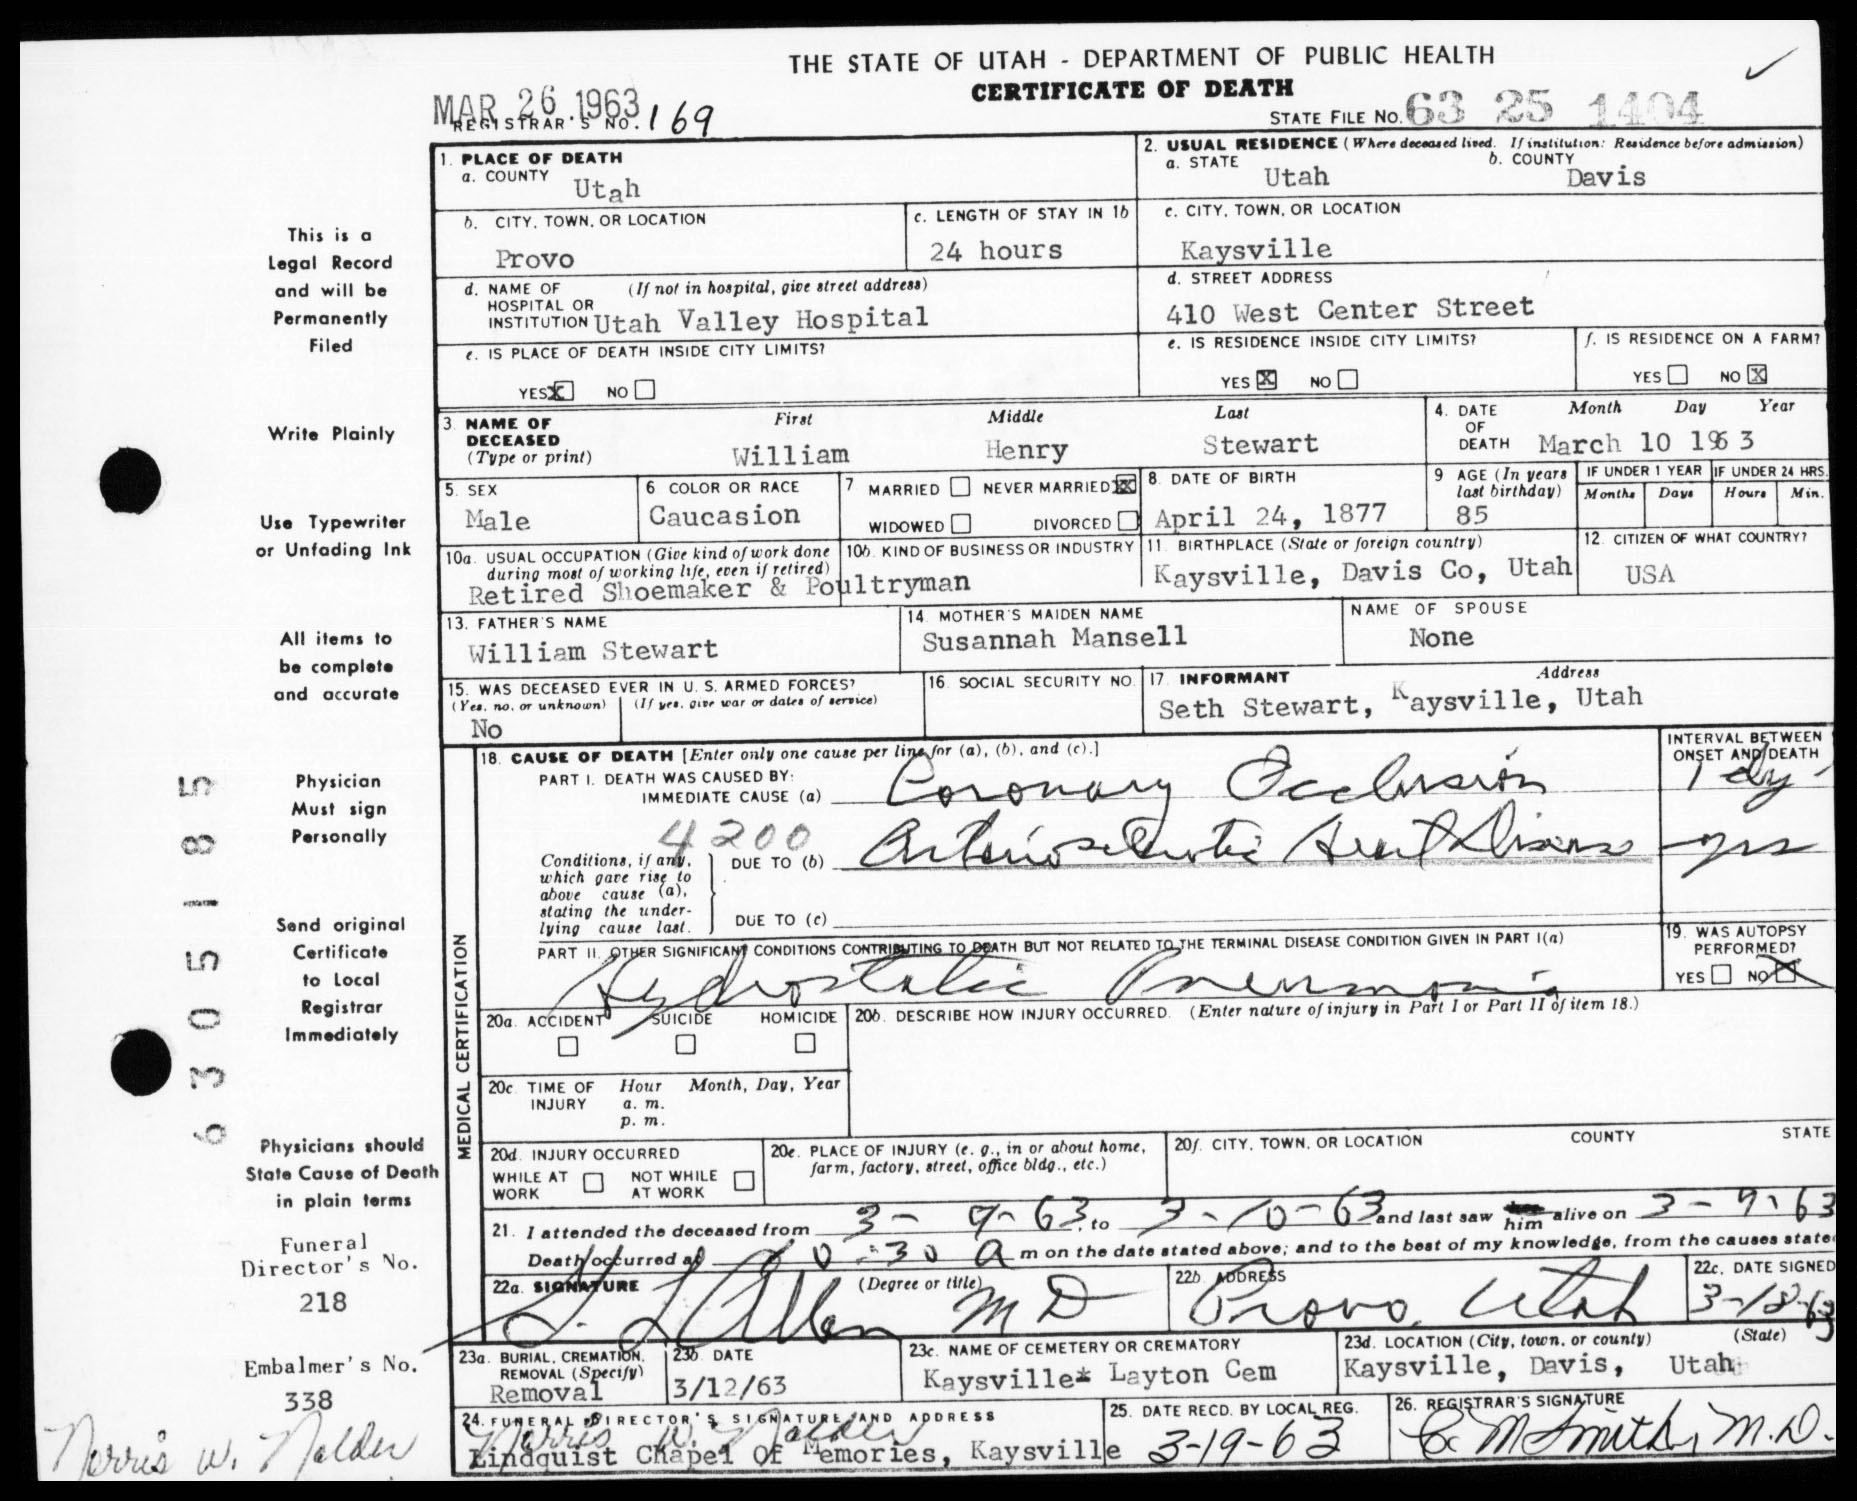 THE STATE OF UTAH - DEPARTMENT OF PUBLIC HEALTH
CERTIFICATE OF DEATH
MAR 26 1963
REGISTRAR'S NO. 169
STATE FILE NO. 63 25 1404
1. PLACE OF DEATH
a. COUNTY Utah
2. USUAL RESIDENCE (Where deceased lived. If institution: Residence before admission)
a. STATE Utah b. COUNTY Davis
b. CITY, TOWN, OR LOCATION Provo
c. LENGTH OF STAY IN 1b 24 hours
c. CITY, TOWN, OR LOCATION Kaysville
d. NAME OF HOSPITAL OR INSTITUTION (If not in hospital, give street address) Utah Valley Hospital
d. STREET ADDRESS 410 West Center Street
e. IS PLACE OF DEATH INSIDE CITY LIMITS?
YES X NO
e. IS RESIDENCE INSIDE CITY LIMITS?
YES X NO
f. IS RESIDENCE ON A FARM?
YES NO X
3. NAME OF DECEASED (Type or print)
First Middle Last
William Henry Stewart
4. DATE OF DEATH Month Day Year
March 10 1963
5. SEX Male
6 COLOR OR RACE Caucasion
7 MARRIED NEVER MARRIED XX
WIDOWED DIVORCED
8. DATE OF BIRTH April 24, 1877
9 AGE (In years last birthday) 85
IF UNDER 1 YEAR Months Days
IF UNDER 24 HRS. Hours Min.
10a. USUAL OCCUPATION (Give kind of work done during most of working life, even if retired)
10b. KIND OF BUSINESS OR INDUSTRY
Retired Shoemaker & Poultryman
11. BIRTHPLACE (State or foreign country) Kaysville, Davis Co, Utah
12. CITIZEN OF WHAT COUNTRY? USA
13. FATHER'S NAME William Stewart
14. MOTHER'S MAIDEN NAME Susannah Mansell
NAME OF SPOUSE None
15. WAS DECEASED EVER IN U. S. ARMED FORCES?
(Yes, no, or unknown) (If yes, give war or dates of service)
No
16. SOCIAL SECURITY NO.
17. INFORMANT Address
Seth Stewart, Kaysville, Utah
MEDICAL CERTIFICATION
18. CAUSE OF DEATH [Enter only one cause per line for (a), (b), and (c).]
INTERVAL BETWEEN ONSET AND DEATH
PART I. DEATH WAS CAUSED BY:
IMMEDIATE CAUSE (a) Coronary Occlusion 1 dy
4200
Conditions, if any, which gave rise to above cause (a), stating the underlying cause last.
DUE TO (b) Arteriosclerotic Heart Disease yrs
DUE TO (c)
PART II. OTHER SIGNIFICANT CONDITIONS CONTRIBUTING TO DEATH BUT NOT RELATED TO THE TERMINAL DISEASE CONDITION GIVEN IN PART I(a)
Hydrostatic Pneumonia
19. WAS AUTOPSY PERFORMED?
YES NO X
20a. ACCIDENT SUICIDE HOMICIDE
20b. DESCRIBE HOW INJURY OCCURRED. (Enter nature of injury in Part I or Part II of item 18.)
20c. TIME OF INJURY Hour Month, Day, Year
a. m.
p. m.
20d. INJURY OCCURRED
WHILE AT WORK NOT WHILE AT WORK
20e. PLACE OF INJURY (e. g., in or about home, farm, factory, street, office bldg., etc.)
20f. CITY, TOWN, OR LOCATION COUNTY STATE
21. I attended the deceased from 3-9-63, to 3-10-63 and last saw him alive on 3-9-63
Death occurred at 10:30 a m on the date stated above; and to the best of my knowledge, from the causes state
22a. SIGNATURE (Degree or title)
Allen M D
22b. ADDRESS Provo, Utah
22c. DATE SIGNED 3-18-63
23a. BURIAL, CREMATION, REMOVAL (Specify) Removal
23b. DATE 3/12/63
23c. NAME OF CEMETERY OR CREMATORY Kaysville* Layton Cem
23d. LOCATION (City, town, or county) (State)
Kaysville, Davis, Utah
24. FUNERAL DIRECTOR'S SIGNATURE AND ADDRESS
Norris W. Nalder
Lindquist Chapel Of Memories, Kaysville
25. DATE RECD. BY LOCAL REG. 3-19-63
26. REGISTRAR'S SIGNATURE
C M Smith, M.D.
This is a
Legal Record
and will be
Permanently
Filed
Write Plainly
Use Typewriter
or Unfading Ink
All items to
be complete
and accurate
Physician
Must sign
Personally
Send original
Certificate
to Local
Registrar
Immediately
Physicians should
State Cause of Death
in plain terms
Funeral
Director's No.
218
Embalmer's No.
338
Norris W. Nalder
6305185